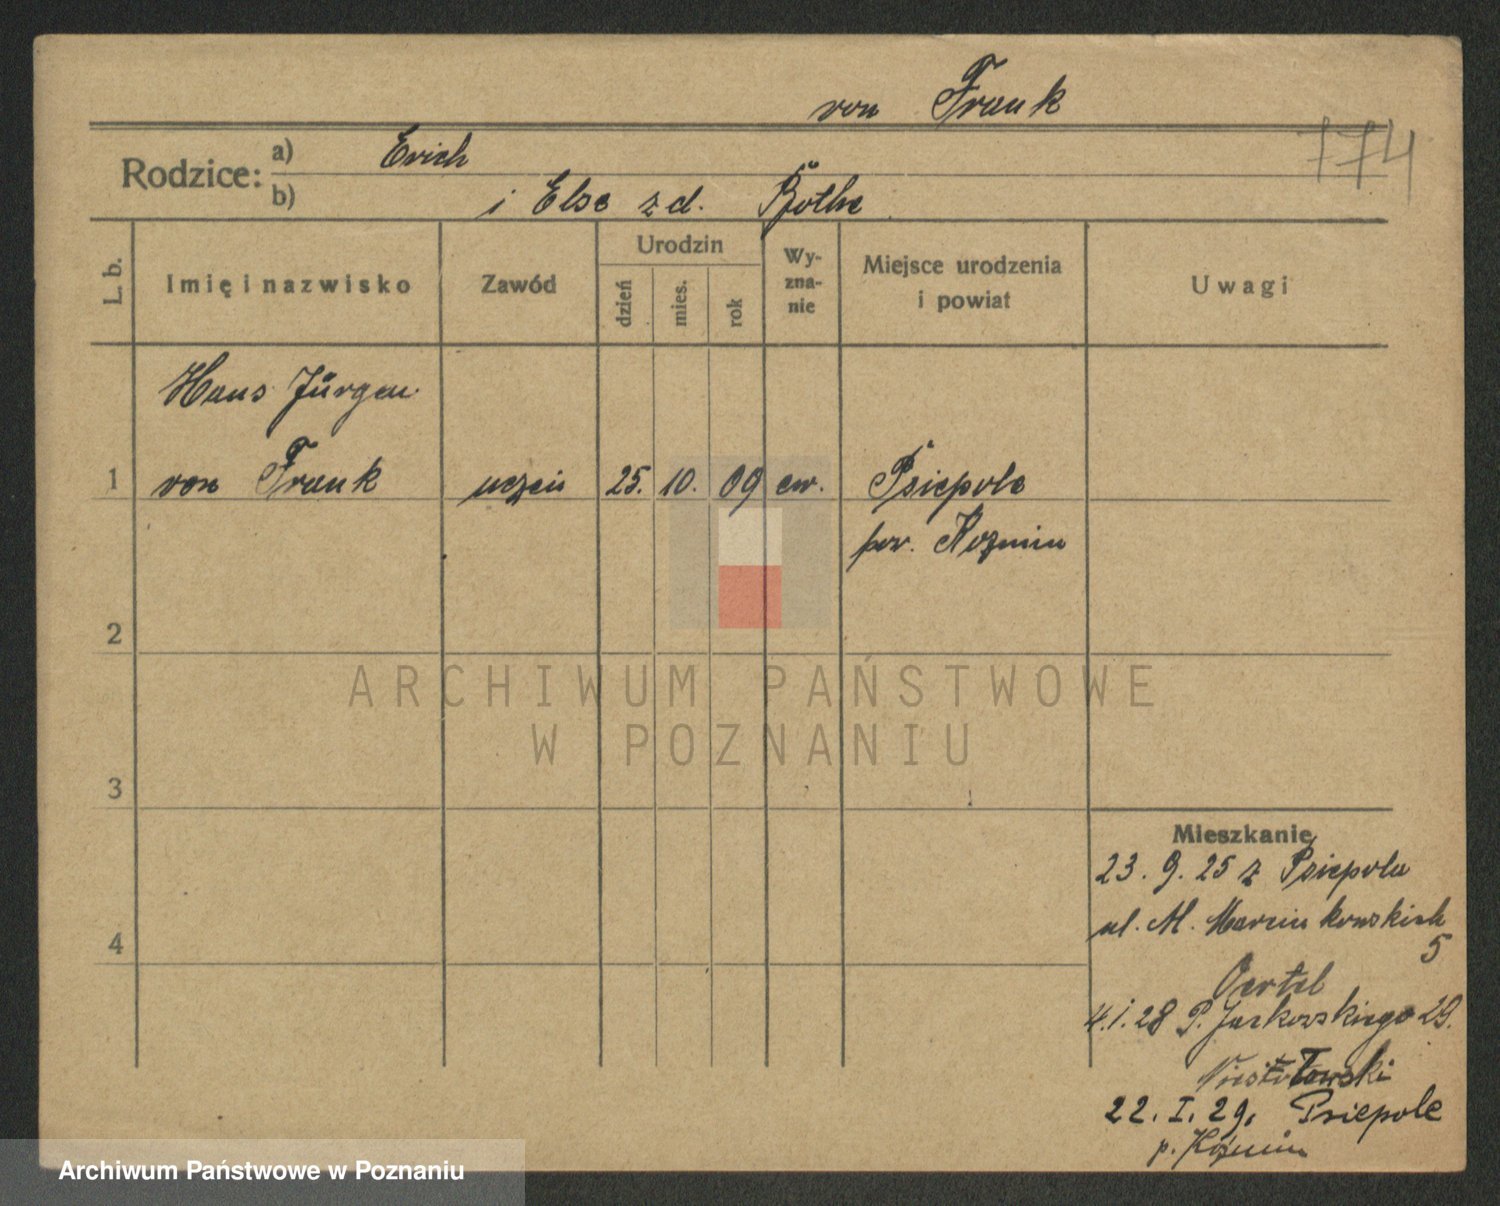 von Frank
174
Rodzice: a) Erich
b) i Else z d. Bothe
L. b.
Imię i nazwisko
Zawód
Urodzin
dzień
mies.
rok
Wy-
zna-
nie
Miejsce urodzenia
i powiat
Uwagi
Hans Jürgen
1 von Frank uczeń 25. 10. 09 ew. Psiepole
pow. Kozmin
2
ARCHIWUM PAŃSTWOWE
W POZNANIU
3
Mieszkanie
23. 9. 25 z Psiepola
ul. M. Marcinkowskich
4
5
Oertel
4.1.28 P. Jackowskiego 29.
22. I. 29. Psiepole
p. Kozmin
Archiwum Państwowe w Poznaniu